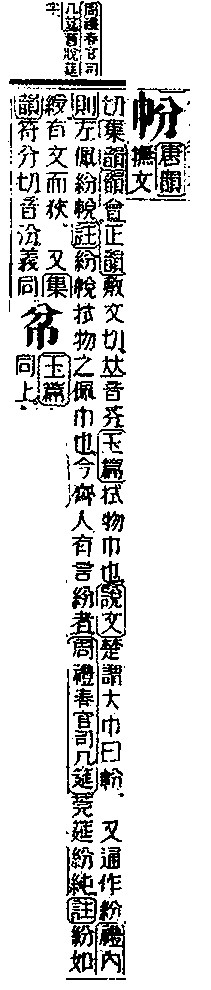 周禮春官司
几筵舊脫筵
字
帉
唐韻
撫文
切集韻韻會正韻敷文切𠀤音芬玉篇拭物巾也說文楚謂大巾曰帉 又通作紛禮內
則左佩紛帨註紛帨拭物之佩巾也今齊人有言紛者周禮春官司几筵莞筵紛純註紛如
綬有文而狹 又集
韻符分切音汾義同
玉篇
同上